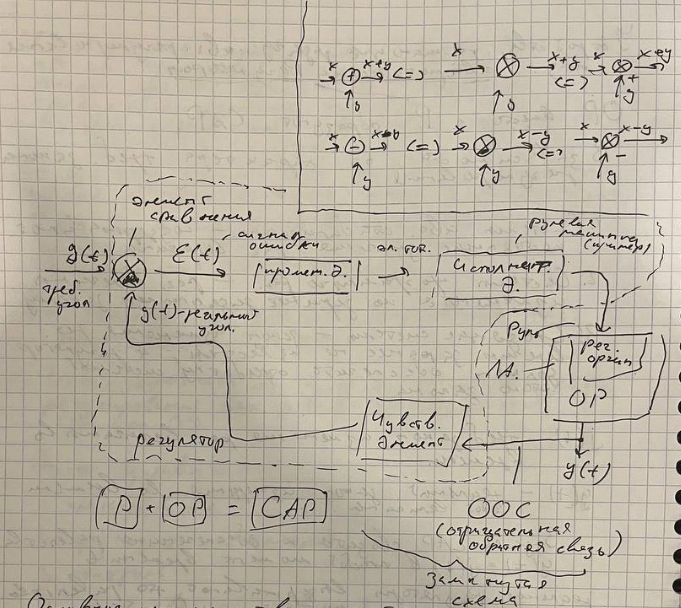 x x+y (=) x x+y (=) x x+y
y y + y
x x-y (=) x x-y (=) x x-y
y y - y
элемент
сравнения
g(t)
треб.
угол
E(t)
сигнал
ошибки
промеж. э.
эл. ток.
Исполнит.
э.
рулевая
машинка
(пример)
y(t)-реальный
угол.
Руль
ЛА.
рег.
орган
ОР
Чувств.
элемент
регулятор
y(t)
Р + ОР = САР
ООС
(отрицательная
обратная связь)
Замкнутая
схема